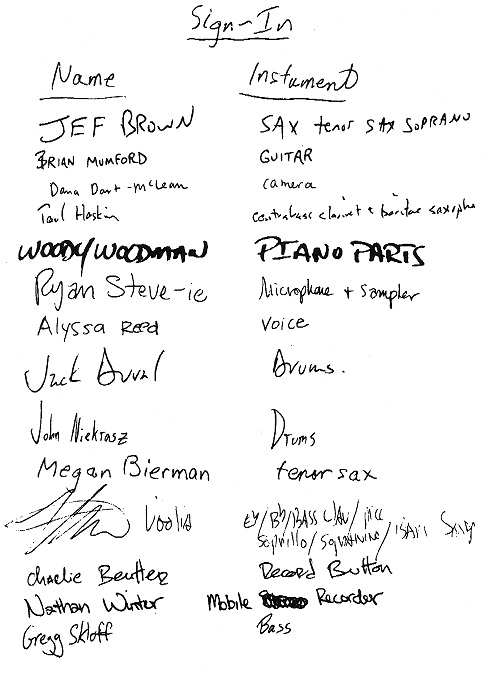 Sign-In
Name Instument
JEF BROWN SAX tenor SAX SOPRANO
BRIAN MUMFORD GUITAR
Dana Dart-McLean camera
Paul Hoskin contrabass clarinet + baritone saxophone
WOODY WOODMAN PIANO PARTS
Ryan Steve-ie Microphone + Sampler
Alyssa Reed Voice
Jack Drums.
John Niekrasz Drums
Megan Bierman tenor sax
Eb/Bb/BASS CLAV/
Sopnillo/Sopranino/
Charlie Beutter Record Button
Nathan Winter Mobile Recorder
Gregg Skloff Bass